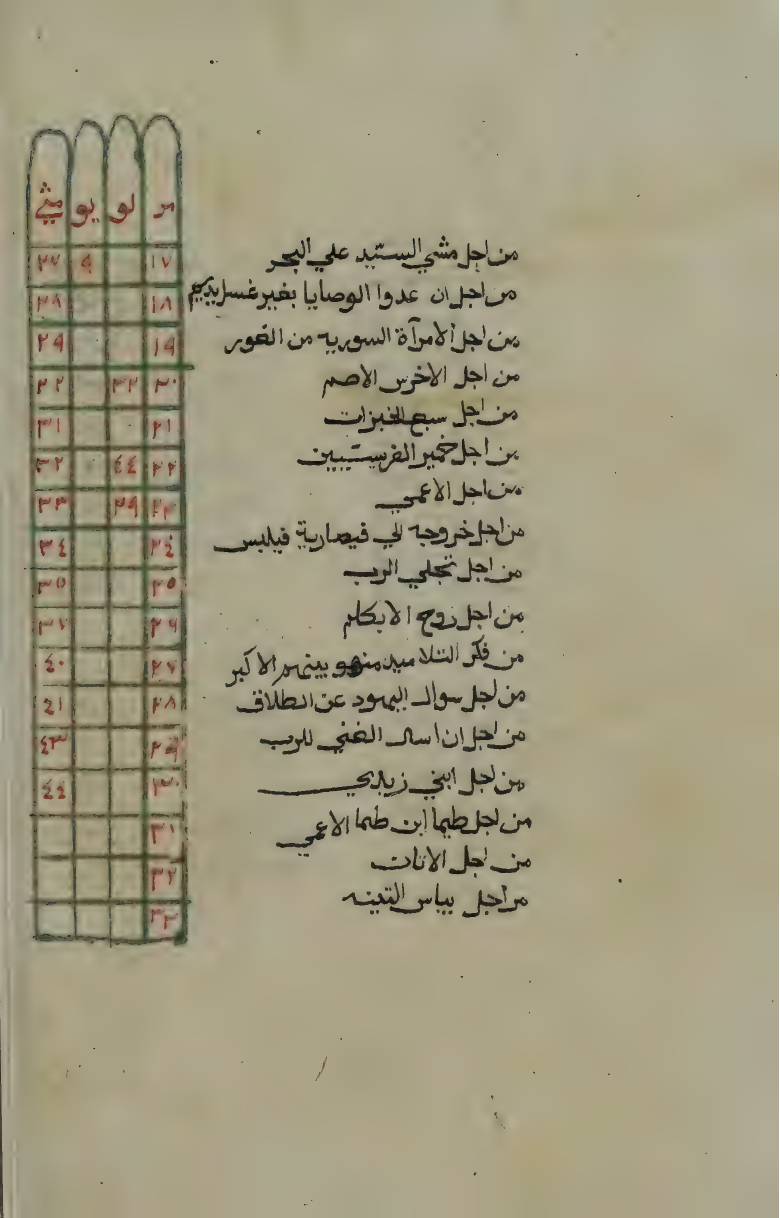 مر لو يو متي
من اجل مشي السيد علي البحر ١٧ ٩ ٢٧
من اجل ان عدوا الوصايا بغير غسل يديهم ١٨ ٢٨
من اجل الامرآة السوريه من الغور ١٩ ٢٩
من اجل الاخرس الاصم ٢٠
من اجل سبع الخبزات ٢١ ٣١
من اجل خمير الفريسيين ٢٢ ٤٤ ٣٢
من اجل الاعمي ٢٣ ٣٣
من اجل خروجه الي قيصارية فيلبس ٢٤ ٣٤
من اجل تجلي الرب ٢٥ ٣٥
من اجل روح الابكلم ٢٦ ٣٧
من فكر التلاميد منهو بينهم الاكبر ٢٧ ٤٠
من اجل سوال اليهود عن الطلاق ٢٨ ٤١
من اجل ان اسال الغني للرب ٢٩ ٤٣
من اجل ابني زبدي ٣٠ ٤٤
من اجل طيما ابن طما الاعمي ٣١
من اجل الاتان ٣٢
من اجل يباس التينه ٣٣